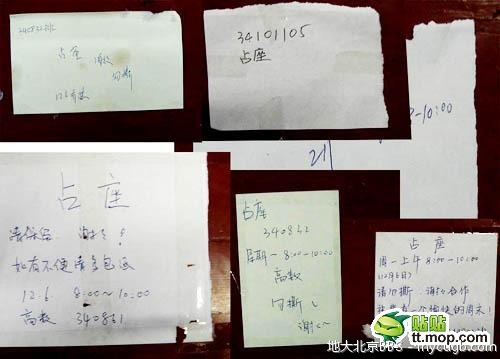 占座
谢谢
勿撕
34101105
占座
8-10:00
占座
谢谢!
如有不便请多包涵
12.6. 8:00~10:00
高数 340831
占座
340831
星期一 8:00-10:00
高数
勿撕
谢谢~
占座
周一上午8:00-10:00
(12月6日)
请勿撕,谢谢合作
贴贴
tt.mop.com
地大北京BBS - my.cugb.com